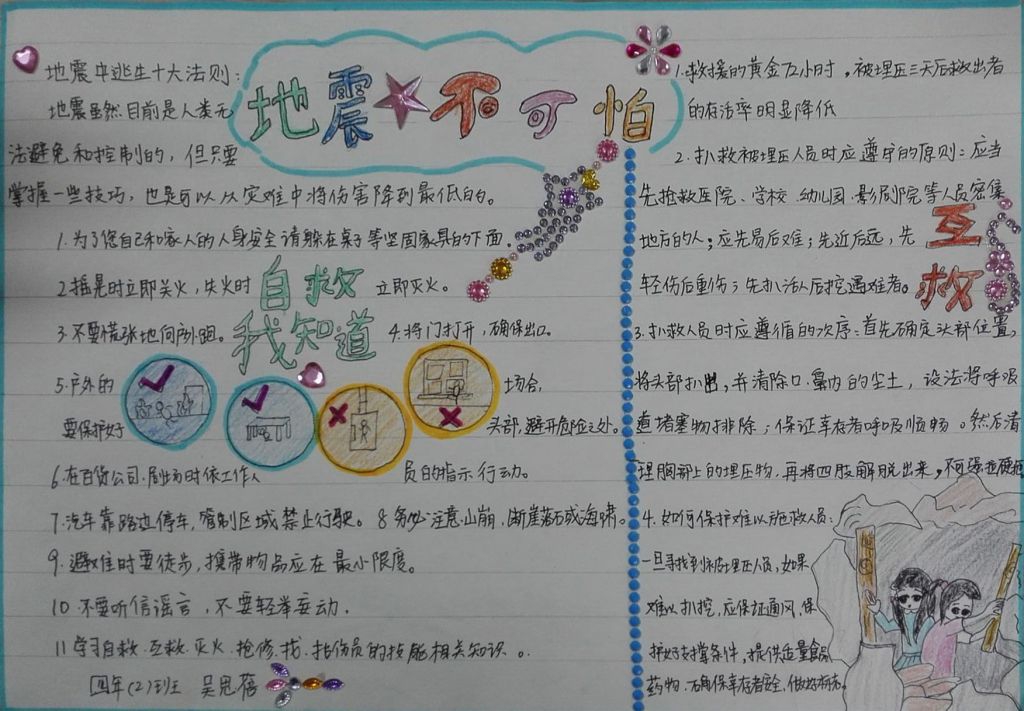 地震不可怕
地震中逃生十大法则:
地震虽然目前是人类无
法避免和控制的，但只要
掌握一些技巧，也是可以从灾难中将伤害降到最低的。
1.为了您自己和家人的人身安全请躲在桌子等坚固家具的下面。
2.摇晃时立即关火，失火时 立即灭火。
自救
我知道
3.不要慌张地向户外跑。 4.将门打开，确保出口。
5.户外的 场合，
要保护好 头部，避开危险之处。
6.在百货公司.剧场时依工作人 员的指示行动。
7.汽车靠路边停车，管制区域禁止行驶。 8 务必注意山崩，断崖落石或海啸。
9.避难时要徒步，携带物品应在最小限度。
10 不要听信谣言，不要轻举妄动.
11 学习自救.互救.灭火.抢修.找.抬伤员的技能相关知识。
四年(2)班 吴思蓓
1.救援的黄金72小时，被埋压三天后救出者
的存活率明显降低
2.扒救被埋压人员时应遵守的原则:应当
先抢救医院、学校.幼儿园.影剧院等人员密集
地方的人;应先易后难;先近后远，先
轻伤后重伤;先扒活人后挖遇难者。
互
救
3.扒救人员时应遵循的次序:首先确定头部位置，
将头部扒出，并清除口.鼻内的尘土，设法将呼吸
道堵塞物排除;保证幸存者呼吸顺畅。然后清
理胸部上的埋压物，再将四肢解脱出来，
4.如何保护难以施救人员:
一旦寻找到被埋压人员，如果
难以扒挖，应保证通风，保
护好支撑条件，提供适量食品
药物.确保幸存者安全，做好标志。